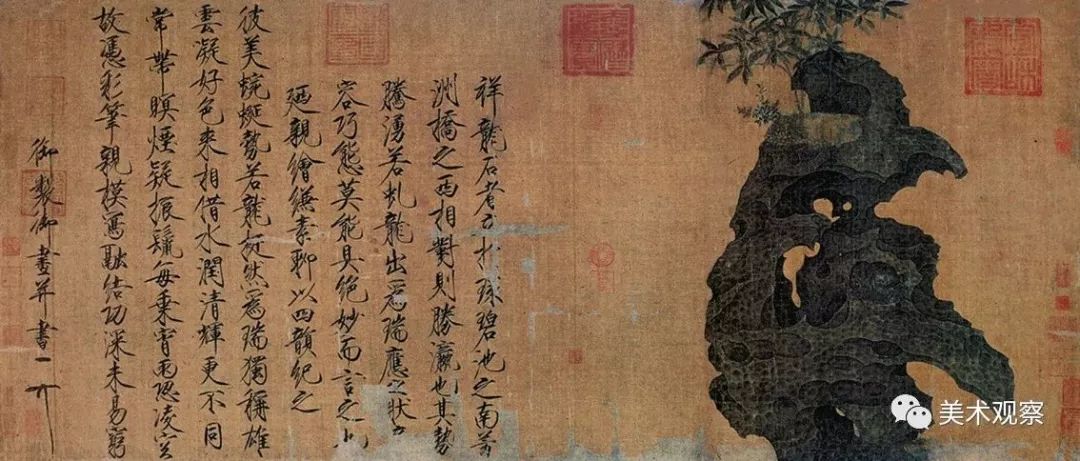 祥龍石者立於環碧池之南芳
洲橋之西相對則勝瀛也其勢
騰湧若虬龍出為瑞應之狀奇
容巧態莫能具絕妙而言之也
廼親繪縑素聊以四韻紀之
彼美蜿蜒勢若龍挺然為瑞獨稱雄
雲凝好色來相借水潤清輝更不同
常帶暝煙疑振鬣每乘宵雨恐凌空
故憑彩筆親模寫融結功深未易窮
御製御畫并書
美术观察